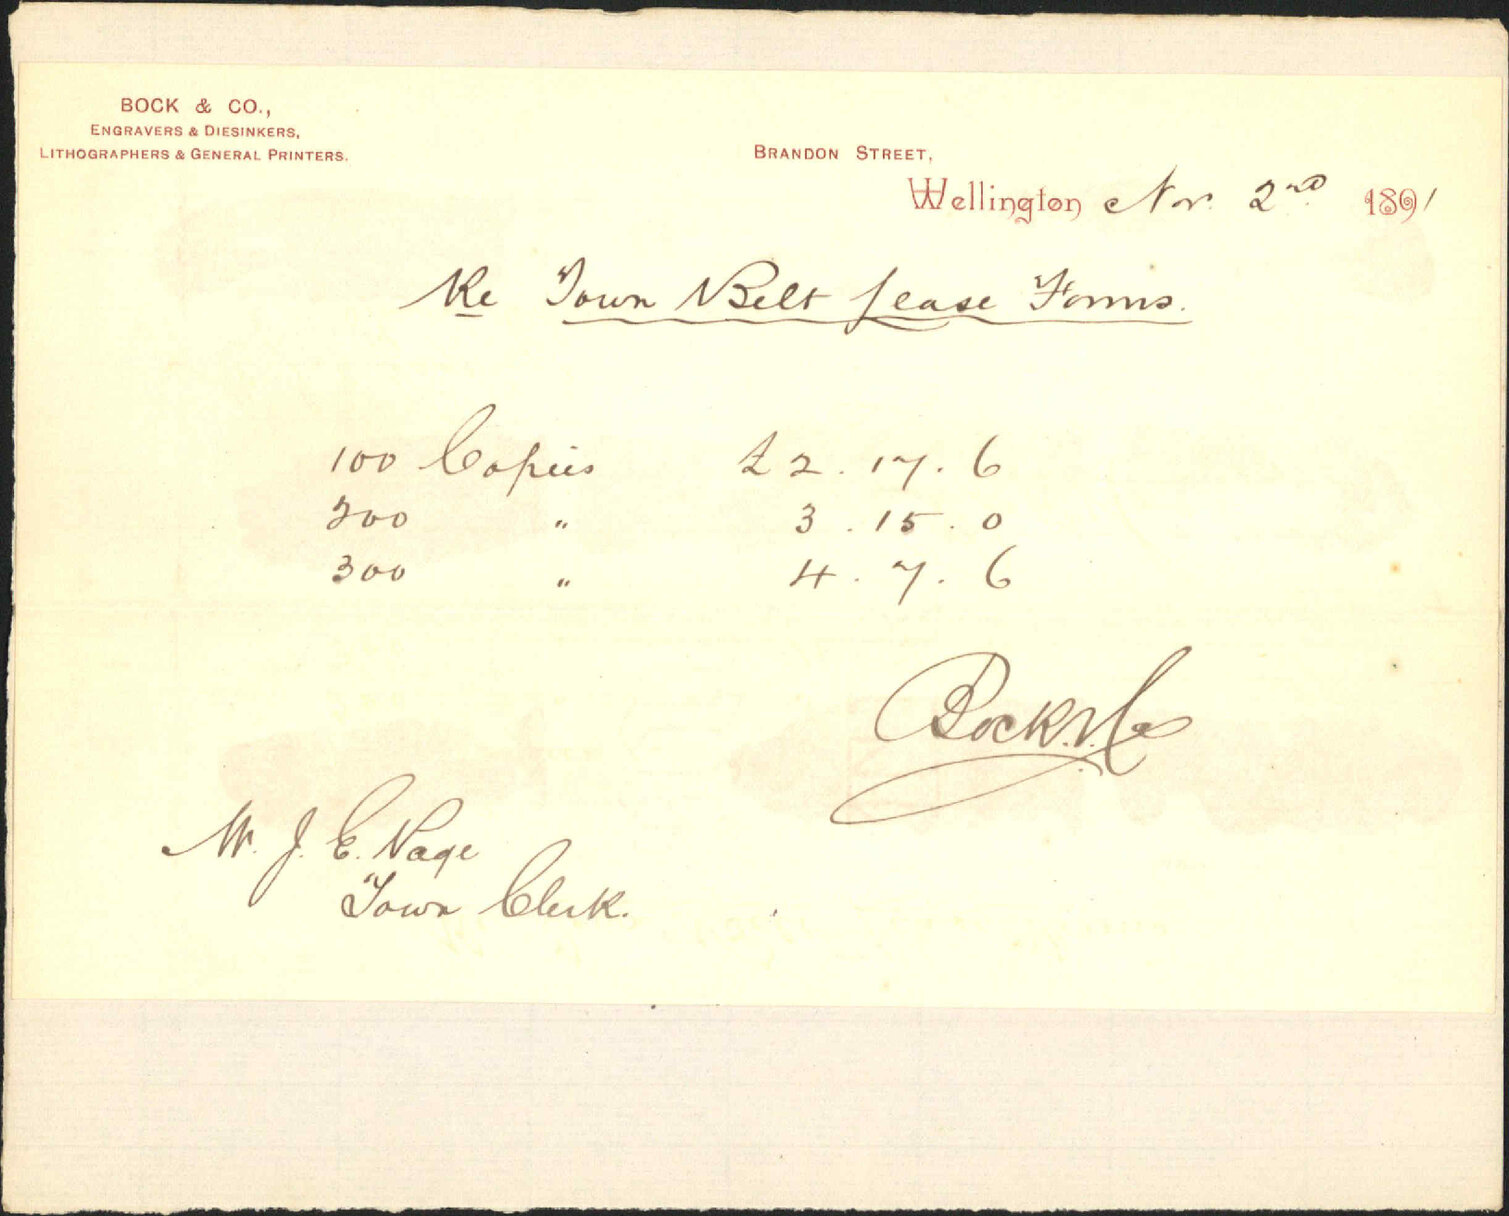 BOCK & CO.,
ENGRAVERS & DIESINKERS,
LITHOGRAPHERS & GENERAL PRINTERS.
BRANDON STREET,
Wellington Nov. 2nd 1891
Re Town Belt Lease Forms.
100 Copies £2.17.6
200 " 3.15.0
300 " 4.7.6
Bock & Co
Mr. J. E. Page
Town Clerk.